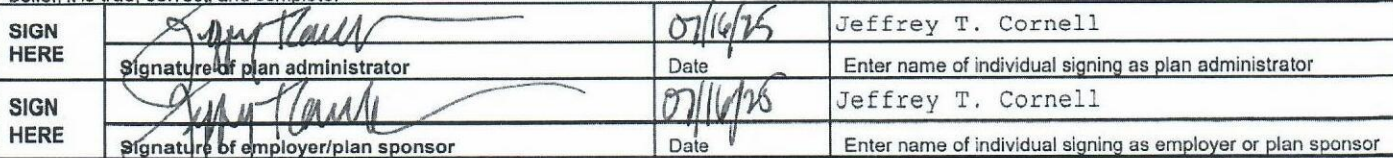 belief, it is true, correct, and complete.
SIGN HERE 07/16/25 Jeffrey T. Cornell
Signature of plan administrator Date Enter name of individual signing as plan administrator
SIGN HERE 07/16/25 Jeffrey T. Cornell
Signature of employer/plan sponsor Date Enter name of individual signing as employer or plan sponsor